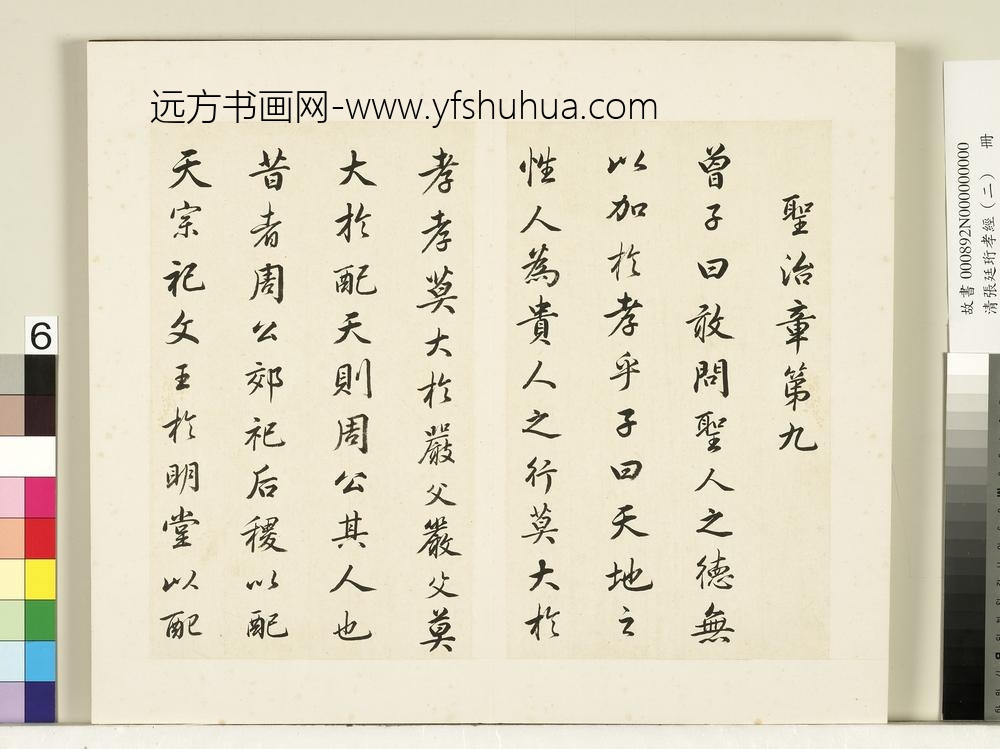 远方书画网-www.yfshuhua.com
聖治章第九
曾子曰敢問聖人之德無
以加於孝乎子曰天地之
性人為貴人之行莫大於
孝孝莫大於嚴父嚴父莫
大於配天則周公其人也
昔者周公郊祀后稷以配
天宗祀文王於明堂以配
故書000892N000000000
清張廷珩孝經（二） 冊
6